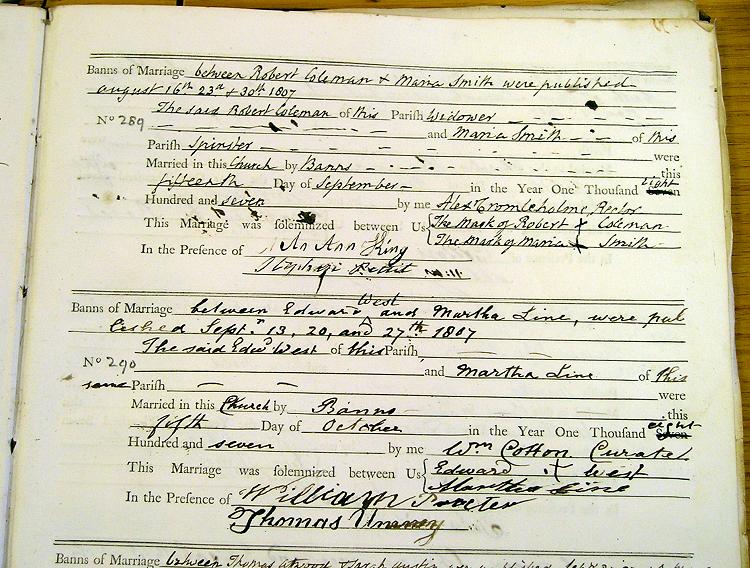 Banns of Marriage between Robert Coleman & Maria Smith were published
august 16th 23d & 30th 1807
The said Robert Coleman of this Parish Widower
No 289 and Maria Smith of this
Parish Spinster were
Married in this Church by Banns this
fifteenth Day of September in the Year One Thousand eight
Hundred and seven by me Alex Cromleholme Rector
This Marriage was solemnized between Us The Mark of Robert X Coleman
The Mark of Maria X Smith
In the Presence of Ann King
Pettit
Banns of Marriage between Edward West and Martha Line, were pub
lished Sept.r 13, 20, and 27th 1807
The said Edwd West of this Parish
No 290 and Martha Line of this
same Parish were
Married in this Church by Banns this
fifth Day of October in the Year One Thousand eight
Hundred and seven by me Wm Cotton Curate
This Marriage was solemnized between Us Edward X West
Martha Line
In the Presence of William Procter
Thomas Umney
Banns of Marriage between Thomas atwood Sarah austin